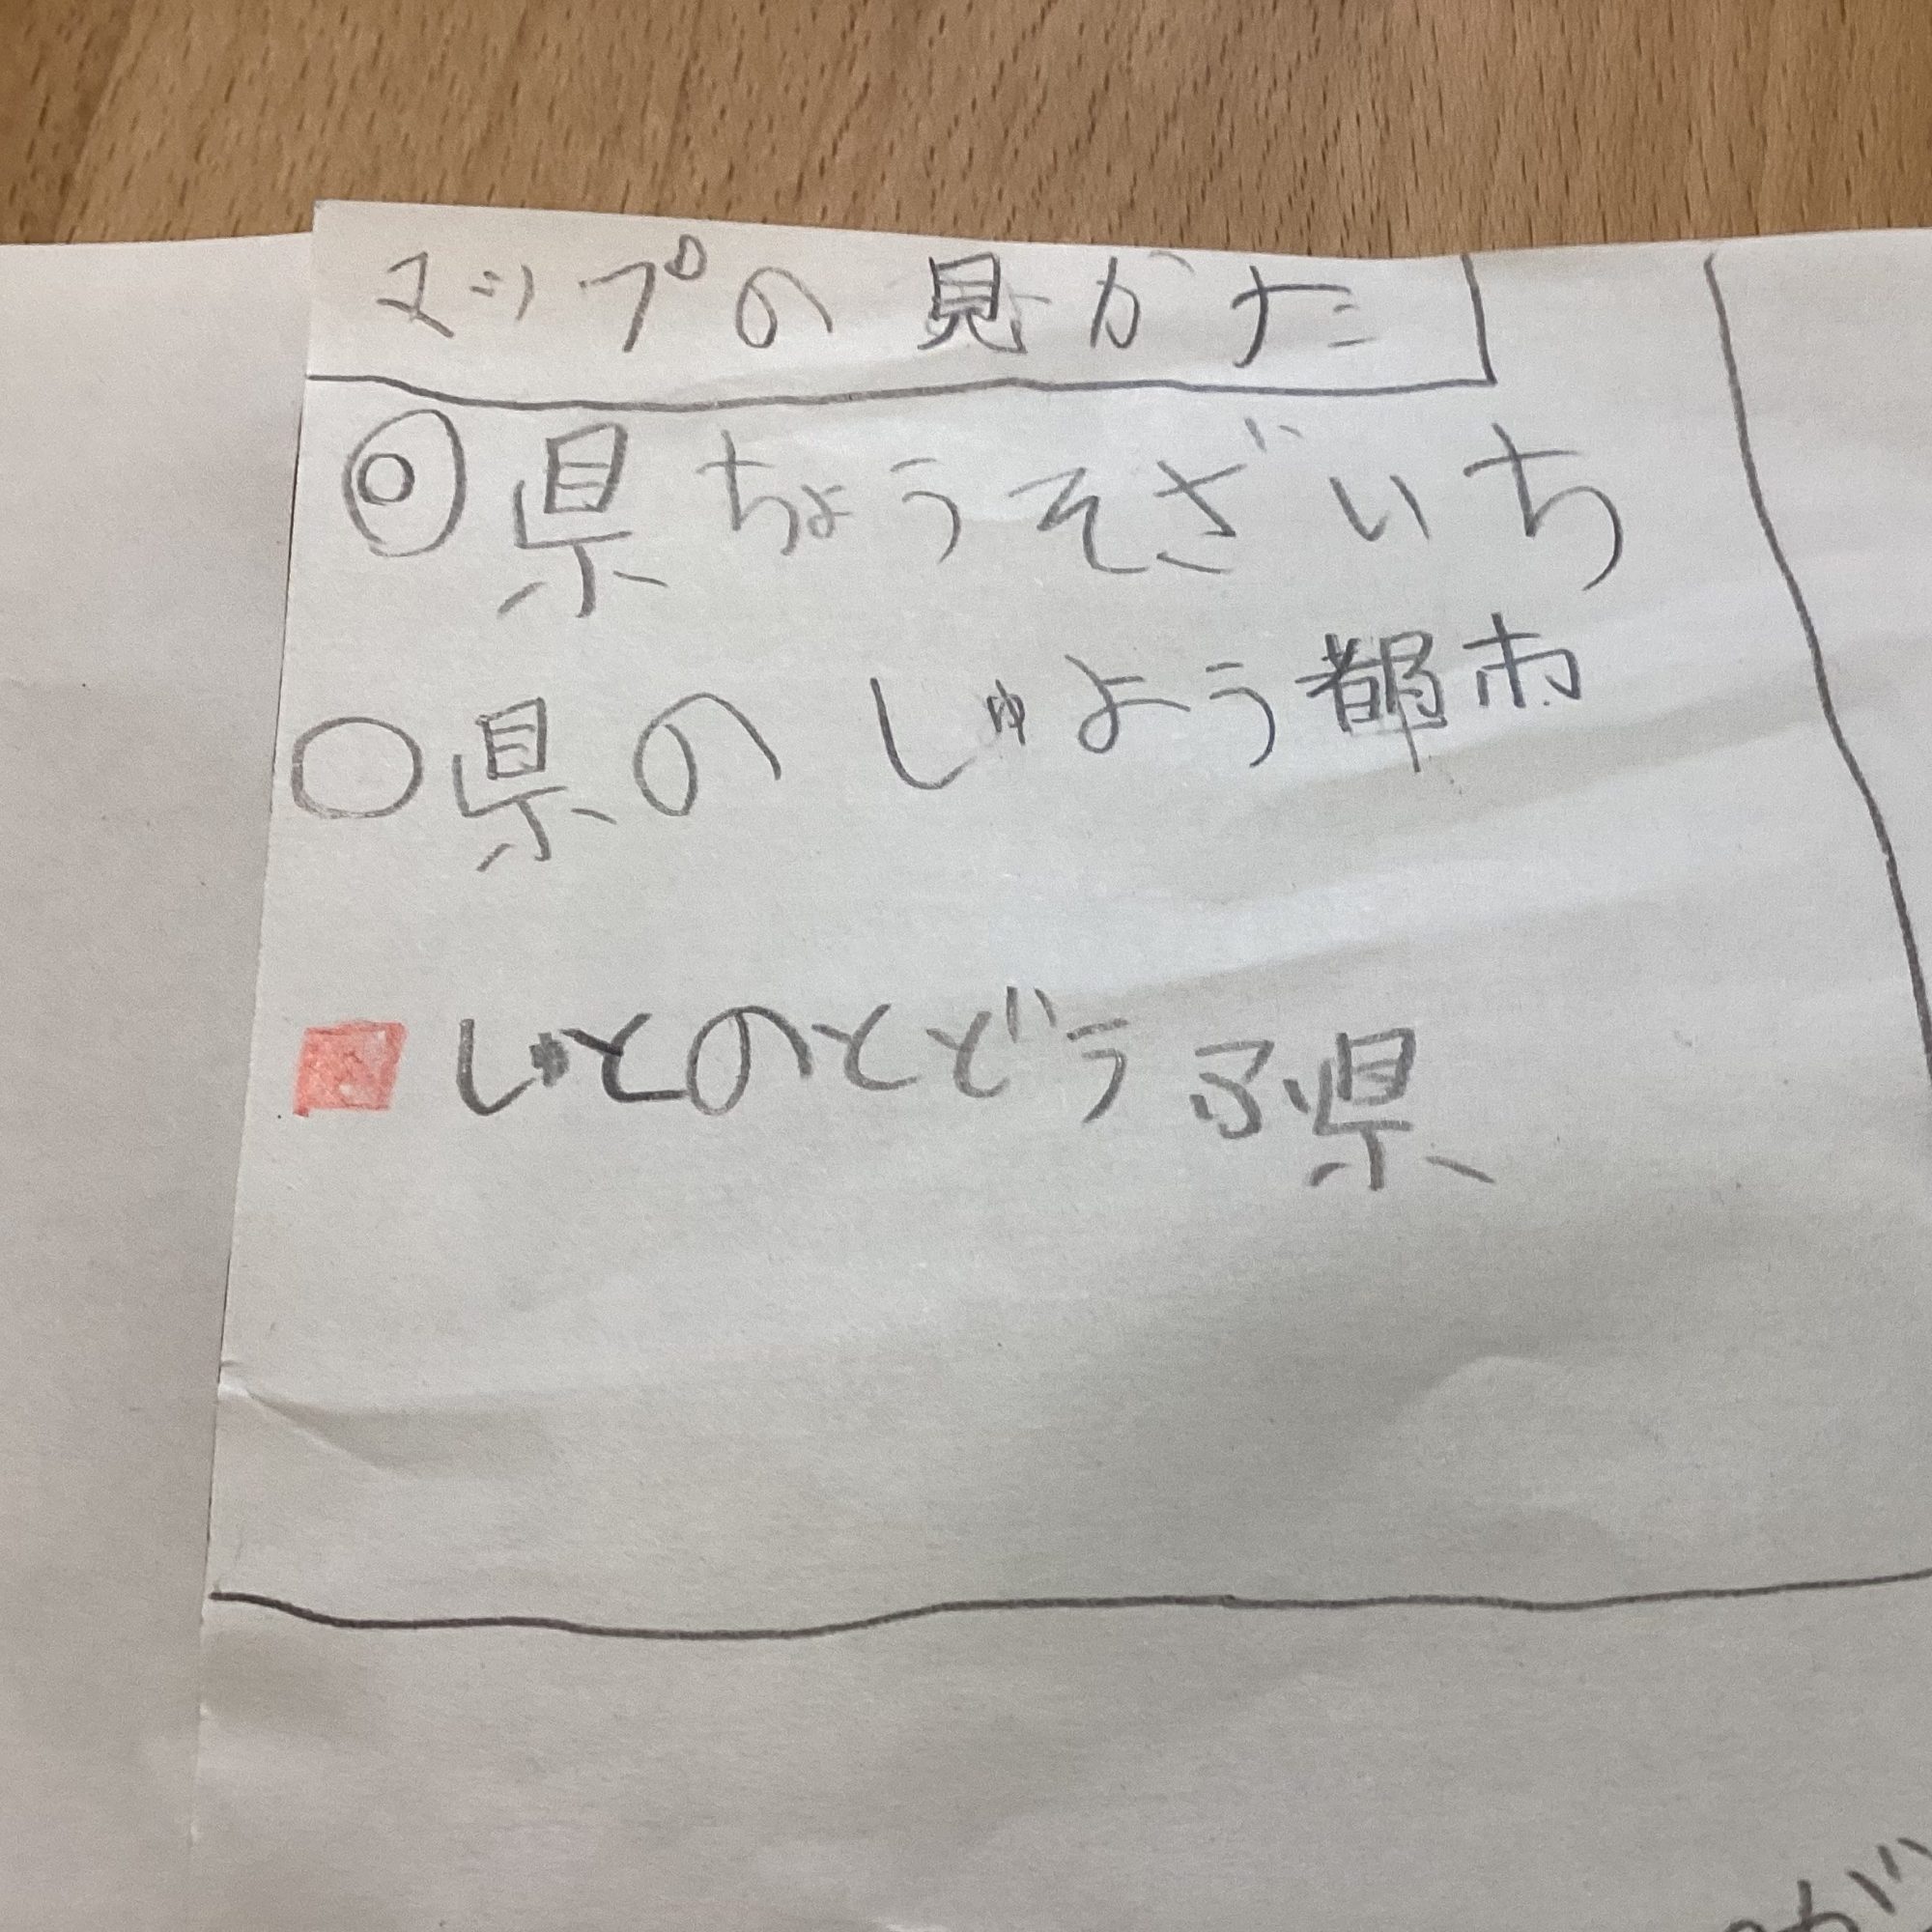 マップの見かた
◎県ちょうそざいち
○県のしゅよう都市
■しゅとのとどうふ県
が